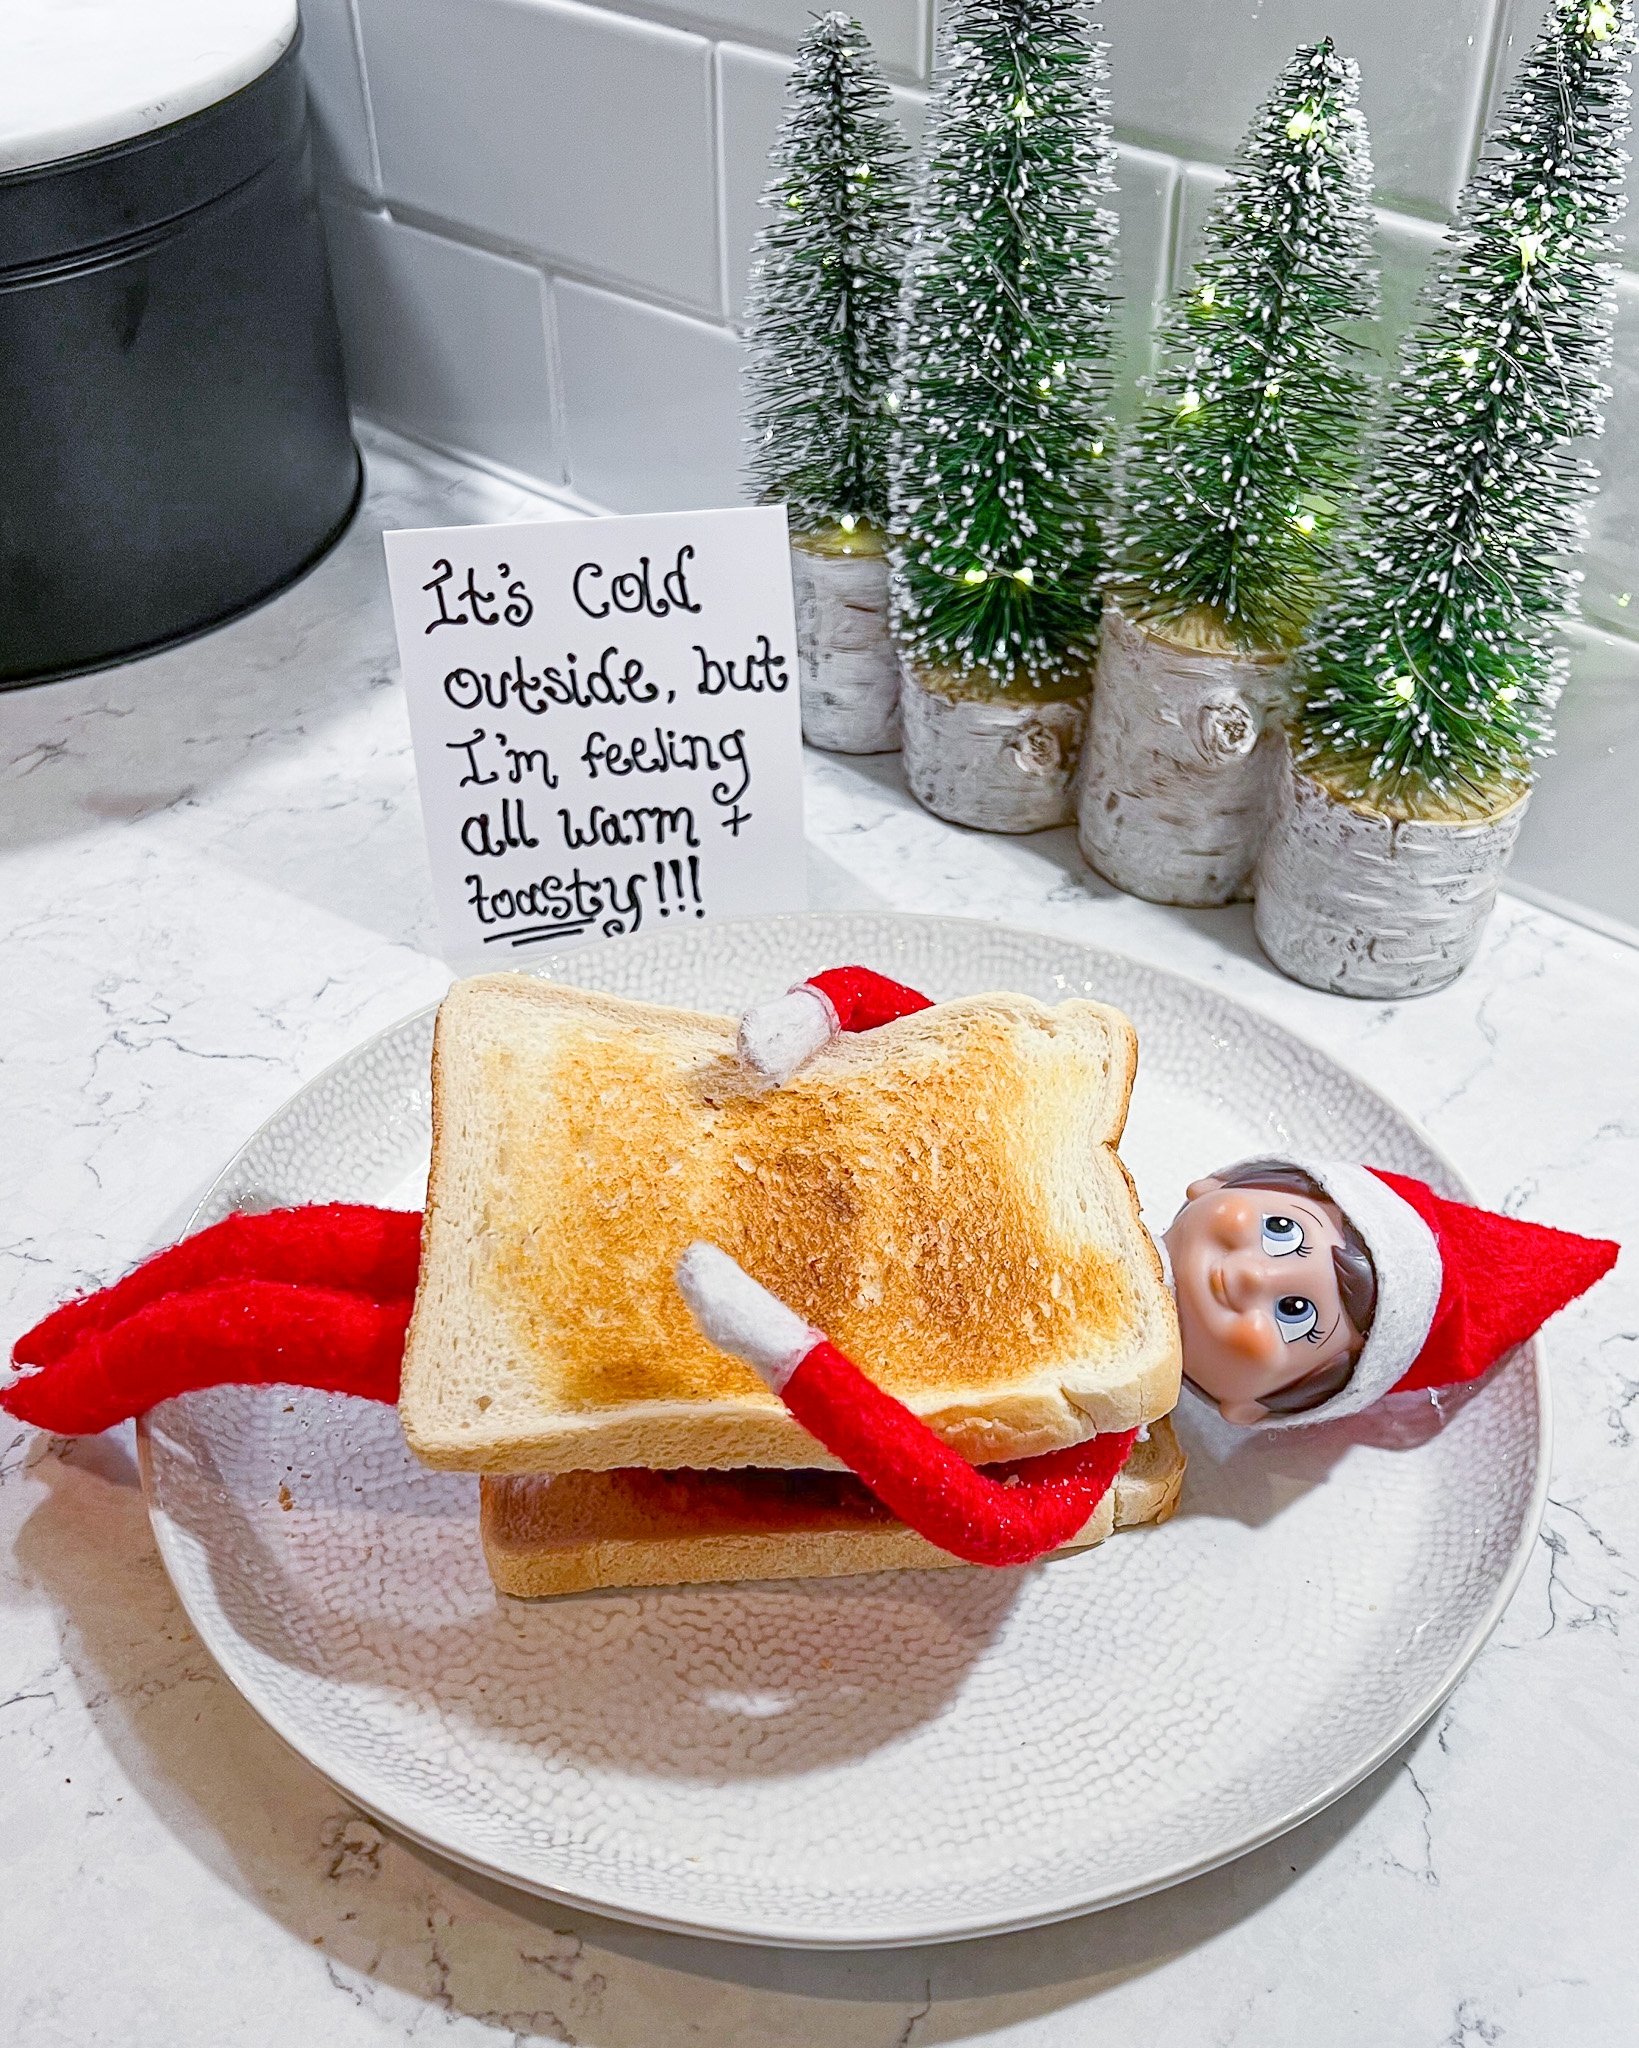 It's Cold
outside, but
I'm feeling
all warm +
toasty!!!